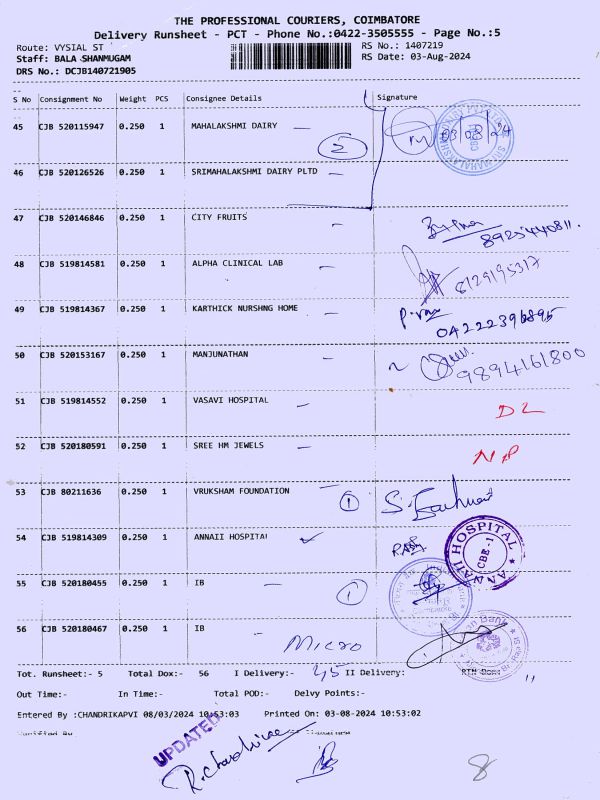 THE PROFESSIONAL COURIERS, COIMBATORE
Delivery Runsheet - PCT - Phone No.:0422-3505555 - Page No.:5
Route: VYSIAL ST RS No.: 1407219
Staff: BALA SHANMUGAM RS Date: 03-Aug-2024
DRS No.: DCJB140721905
S No Consignment No Weight PCS Consignee Details Signature
45 CJB 520115947 0.250 1 MAHALAKSHMI DAIRY 03/08/24
2
46 CJB 520126526 0.250 1 SRIMAHALAKSHMI DAIRY PLTD
47 CJB 520146846 0.250 1 CITY FRUITS
8925440811.
48 CJB 519814581 0.250 1 ALPHA CLINICAL LAB
8129195317
49 CJB 519814367 0.250 1 KARTHICK NURSHNG HOME
04222396895
50 CJB 520153167 0.250 1 MANJUNATHAN
9894161800
51 CJB 519814552 0.250 1 VASAVI HOSPITAL
DL
52 CJB 520180591 0.250 1 SREE HM JEWELS
NP
53 CJB 80211636 0.250 1 VRUKSHAM FOUNDATION 1
54 CJB 519814309 0.250 1 ANNAII HOSPITAL
ANNAII HOSPITAL
CBE-1
55 CJB 520180455 0.250 1 IB 1
56 CJB 520180467 0.250 1 IB
Micro
Tot. Runsheet:- 5 Total Dox:- 56 I Delivery:- 45 II Delivery:- 11
Out Time:- In Time:- Total POD:- Delvy Points:-
Entered By :CHANDRIKAPVI 08/03/2024 10:53:03 Printed On: 03-08-2024 10:53:02
Verified By
UPDATED
8